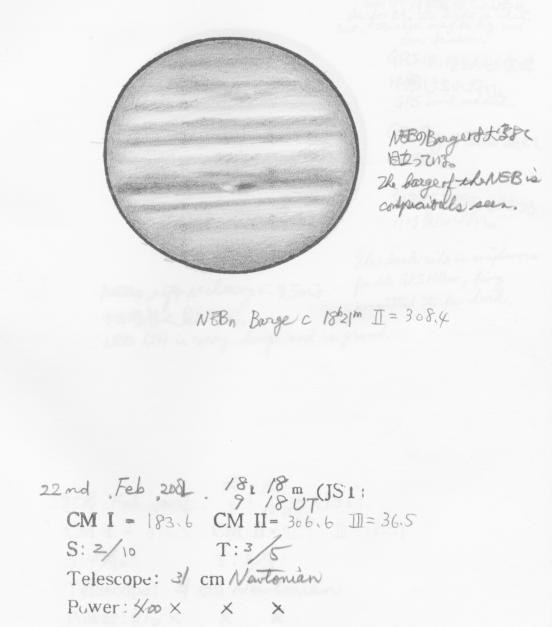 NEBのBargeは大きく
目立っている。
The barge of the NEB is
conspicuously seen.
NEBn Barge c 18h21m II = 308.4
22nd Feb 18h 18m (JST:
9 18 UT
CM I = 183.6 CM II= 306.6 III = 36.5
S: 2/10 T: 3/5
Telescope: 31 cm Newtonian
Power: 400 × × ×